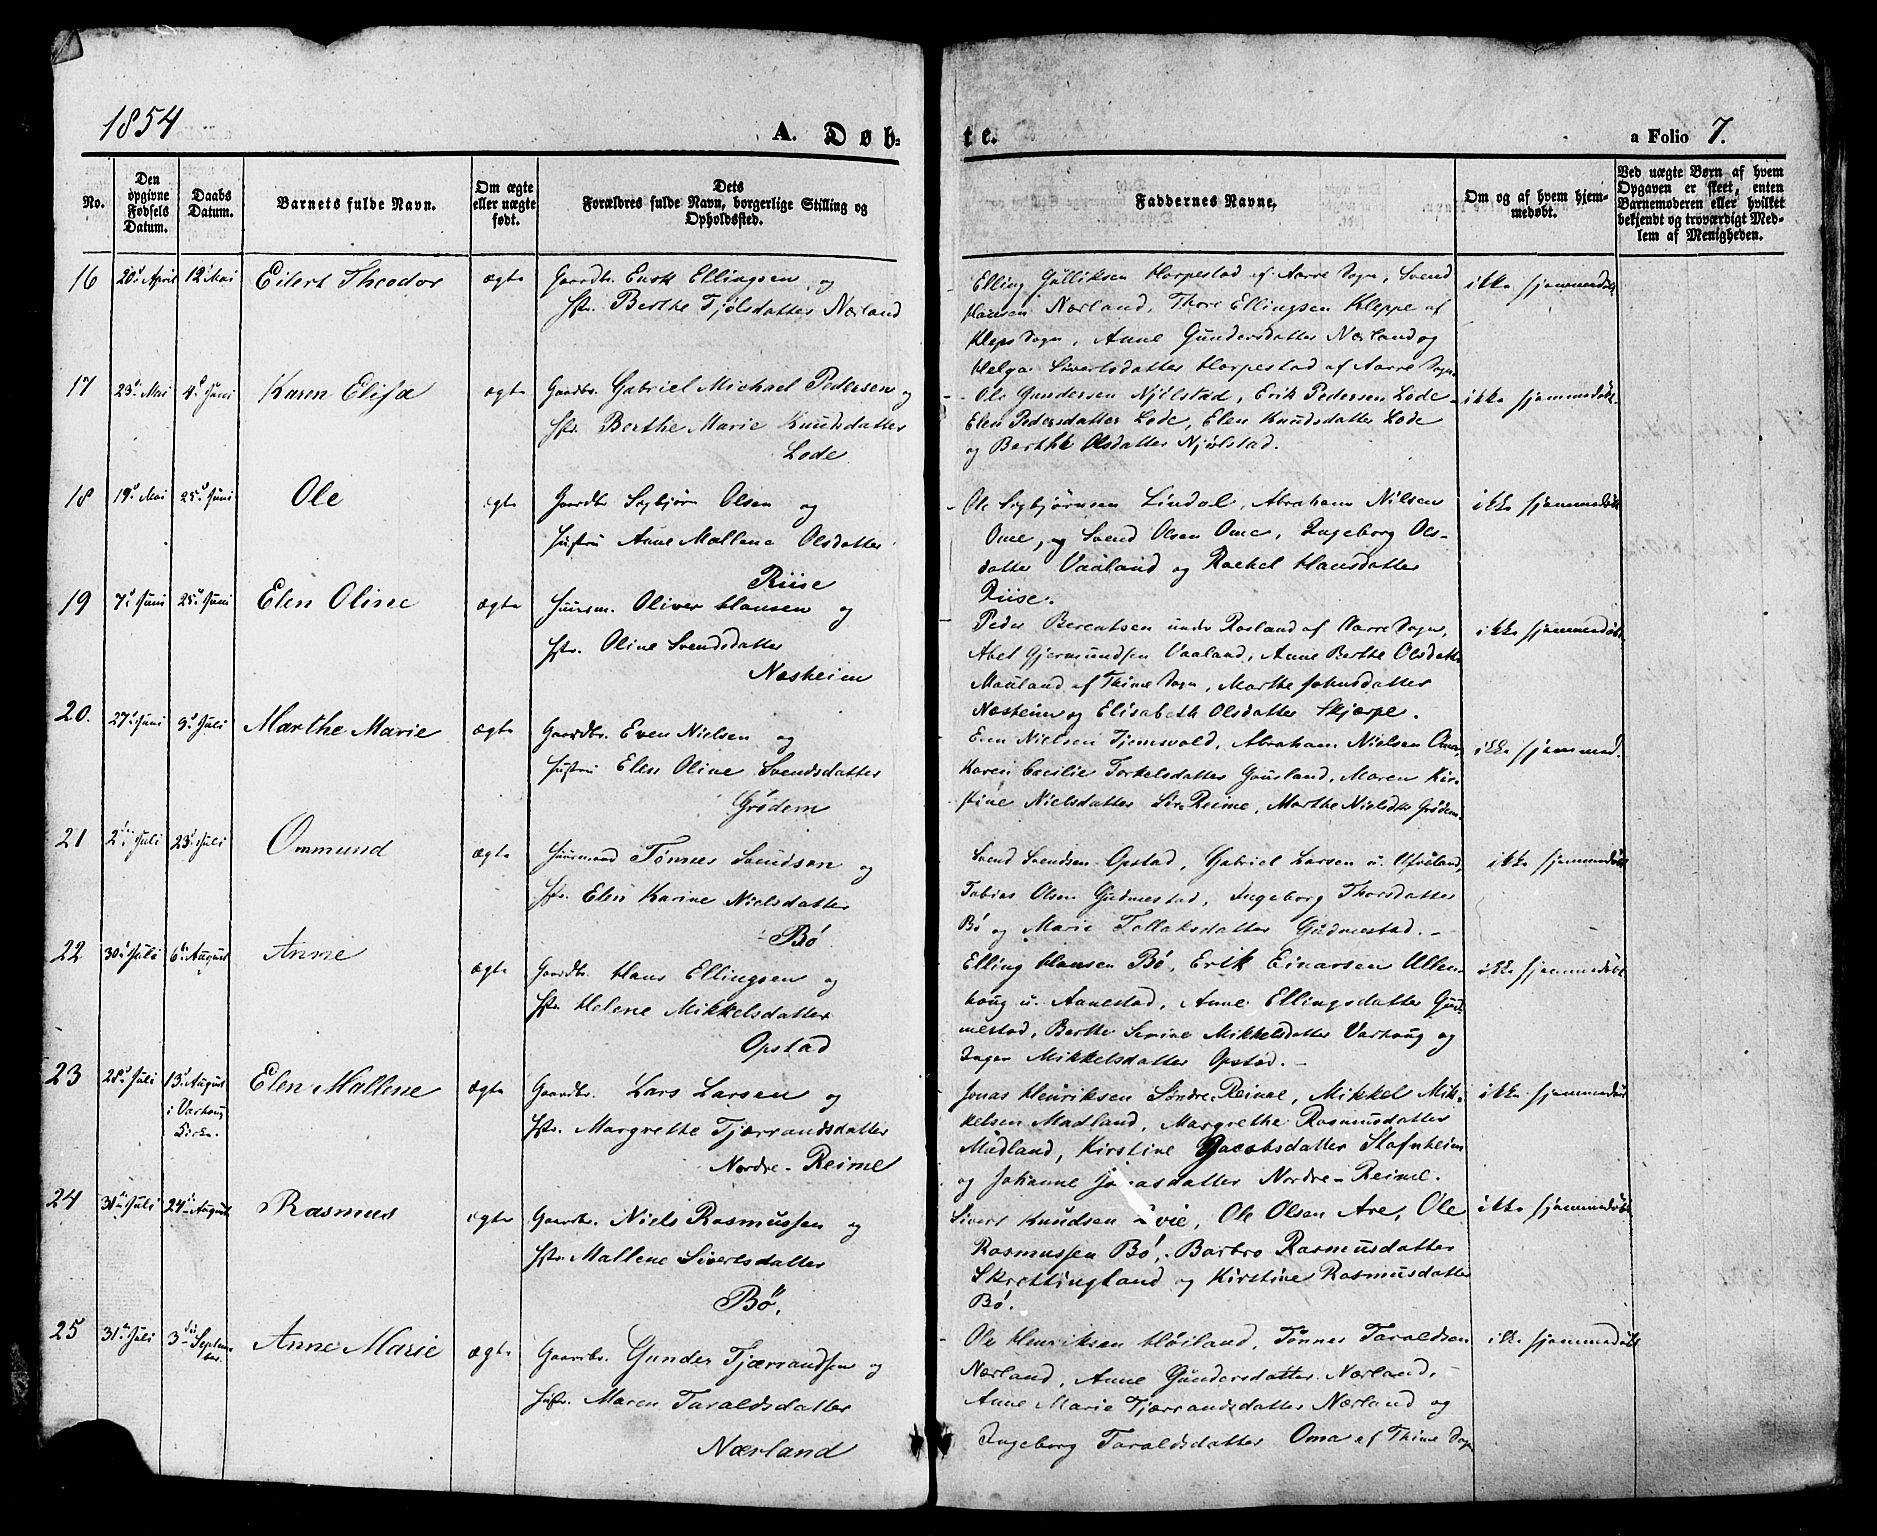 1854
A. Døb=
te.
a Folio 7.
No.
Den opgivne Fødsels Datum.
Daabs Datum.
Barnets fulde Navn.
Om ægte eller uægte født.
Dets Forældres fulde Navn, borgerlige Stilling og Opholdssted.
Faddernes Navne.
Om og af hvem hjemmedøbt.
Ved uægte Børn af hvem Opgaven er skeet, enten Barnemoderen eller hvilket bekjendt og troværdigt Medlem af Menigheden.
16 20de April 12te Mai Eilert Theodor ægte Gaardbr. Ellingsen og
Hstr. Berthe Tjølsdatter Nærland
Elling Gulliksen Horpestad af Aarre Sogn, Svend
Hansen Nærland, Thore Ellingsen Kleppe af
Kleps Sogn, Anne Gundersdatter Nærland og
Helga Sivertsdatter Horpestad af Aarre Sogn
ikke hjemmedøbt
17 23d Mai 4d Juni Karen Elisa ægte Gaardbr. Gabriel Michael Pedersen og
Hstr. Berthe Marie Knudsdatter
Lode
Ole Gundersen Njølstad, Erik Pedersen Lode
Elen Pedersdatter Lode, Elen Knudsdatter Lode
og Berthe Olsdatter Njølstad.
ikke hjemmedøbt
18 19d Mai 25d Juni Ole ægte Gaardbr Sigbjørn Olsen og
Hustru Anne Mallene Olsdatter
Riise
Ole Sigbjørnsen Lindal, Abraham Nilsen
Ome, og Svend Olsen Ome, Ingeborg Ols-
datter Vaaland og Rachel Hansdatter
Riise.
ikke hjemmedøbt
19 7d Juni 25d Juni Elen Oline ægte Huusm. Oliver Hansen og
Hstr. Oline Svendsdatter
Næsheim
Peder Berentsen under Rosland af Aarre Sogn,
Abel Gjermundsen Vaaland, Anne Berthe Olsdatt
Mauland af Thime Sogn, Marthe Johnsdatter
Næsheim og Elisabeth Olsdatter Skjærpe.
ikke hjemmedøbt
20. 27d Juni 9d Juli Marthe Marie ægte Gaardbr. Even Nielsen og
Hustru Elen Oline Svendsdatter
Grødem
Even Nielsen Tjemsvold, Abraham Nielsen Ome,
Karen Cecilie Torkelsdatter Gausland, Maren Kir-
stine Nielsdatter Sør Reime, Marthe Nielsdtr Grødem.
ikke hjemmed.
21 2den Juli 23d Juli Ommund ægte Huusmand Tønnes Svendsen og
Hstr. Elen Karine Nielsdatter
Bø
Svend Svendsen Opstad, Gabriel Larsen u.
Tobias Olsen Gudmestad, Ingeborg Thorsdatter
Bø og Marie Tollaksdatter Gudmestad.
ikke hjemmedøbt
22 30d Juli 6te August Anne ægte Gaardbr. Hans Ellingsen og
Hstr. Helene Mikkelsdatter
Opstad
Elling Hansen Bø, Erik Einarsen Ullen-
houg u. Aanestad, Anne Ellingsdatter Gud-
mestad, Berthe Serine Mikkelsdatter Varhoug og
Inger Mikkelsdatter Opstad.
ikke hjemmedøbt
23 28d Juli 13d August
i Varhoug
Kirke. Elen Mallene ægte Gaardbr. Lars Larsen og
Hstr. Margrethe Tjærrandsdatter
Nordre-Reime
Jonas Henriksen Søndre Reime, Mikkel Mik-
kelsen Madland, Margrethe Rasmusdatter
Madland, Kirstine Jacobsdatter Stafnheim
og Johanne Jonasdatter Nordre-Reime.
ikke hjemmedøbt
24 31te Juli 24de August Rasmus ægte Gaardbr. Niels Rasmussen og
Hstr. Mallene Sivertsdatter
Bø.
Sivert Knudsen Ole Olsen Are, Ole
Rasmussen Bø, Barbro Rasmusdatter
Skrettingland og Kirstine Rasmusdatter
Bø.
ikke hjemmedøbt
25 31te Juli 3die Septem-
ber. Anne Marie ægte Gaardbr. Gunder Tjærrandsen og
Hustr. Maren Taraldsdatter
Nærland
Ole Henriksen Høiland, Tønnes Taraldsen
Nærland, Anne Gundersdatter Nærland,
Anne Marie Tjærrandsdatter Nærland og
Ingeborg Taraldsdatter Oma af Thime Sogn
ikke hjemmedøbt